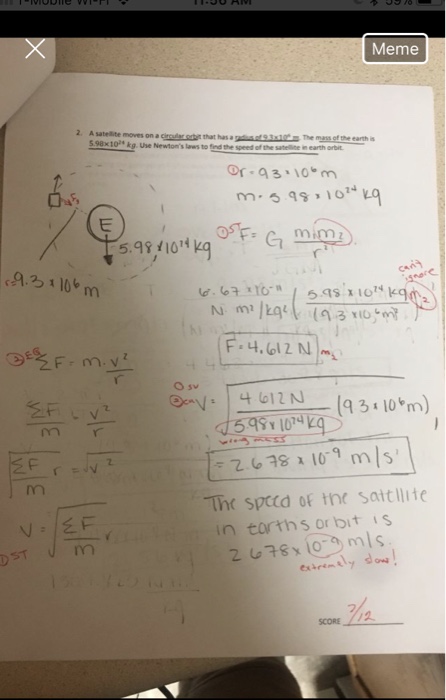 11:50 AM
Meme
2. A satellite moves on a circular orbit that has a radius of 9.3x10⁶ m. The mass of the earth is
5.98x10²⁴ kg. Use Newton's laws to find the speed of the satellite in earth orbit.
r = 9.3 x 10⁶ m
m = 5.98 x 10²⁴ kg
E
5.98 x 10²⁴ kg
ST F = G m₁m₂
r²
r = 9.3 x 10⁶ m
can't
ignore
6.67 x 10⁻¹¹
5.98 x 10²⁴ kg m₂
N·m²/kg²
(9.3 x 10⁶ m)²
F = 4.612 N m₂
EQ ΣF = m·v²
r
ΣF = v²
m r
ΣF r = √v²
m
V = √ΣF r
m
ST
V = √4.612 N (9.3 x 10⁶ m)
5.98 x 10²⁴ kg
wrong mass
= 2.678 x 10⁻⁹ m/s
The speed of the satellite
in earths orbit is
2.678 x 10⁻⁹ m/s.
extremely slow!
SCORE 7/12